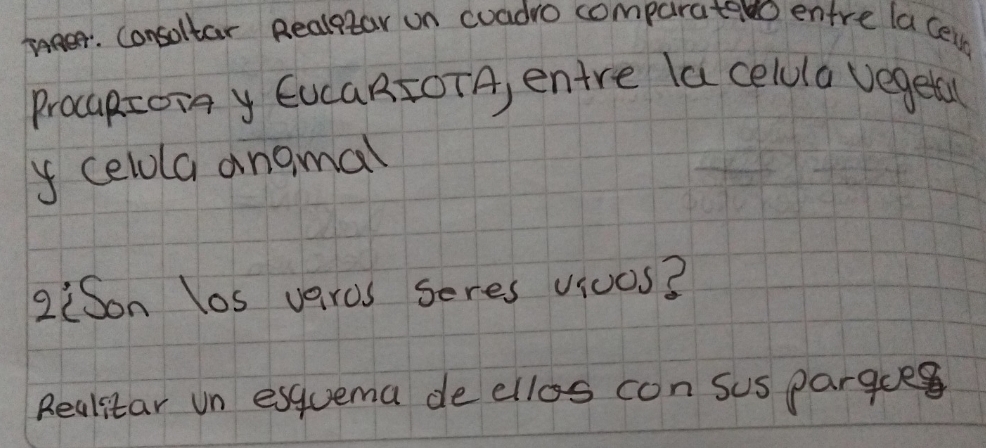 TAREA. Consoltar Realizar un cuadro comparativo entre la celula
ProcaRIOTA y EucaRIOTA, entre la celula vegetal
y celula animal
2¿Son los virus seres vivos?
Realizar un esquema de ellos con sus parques